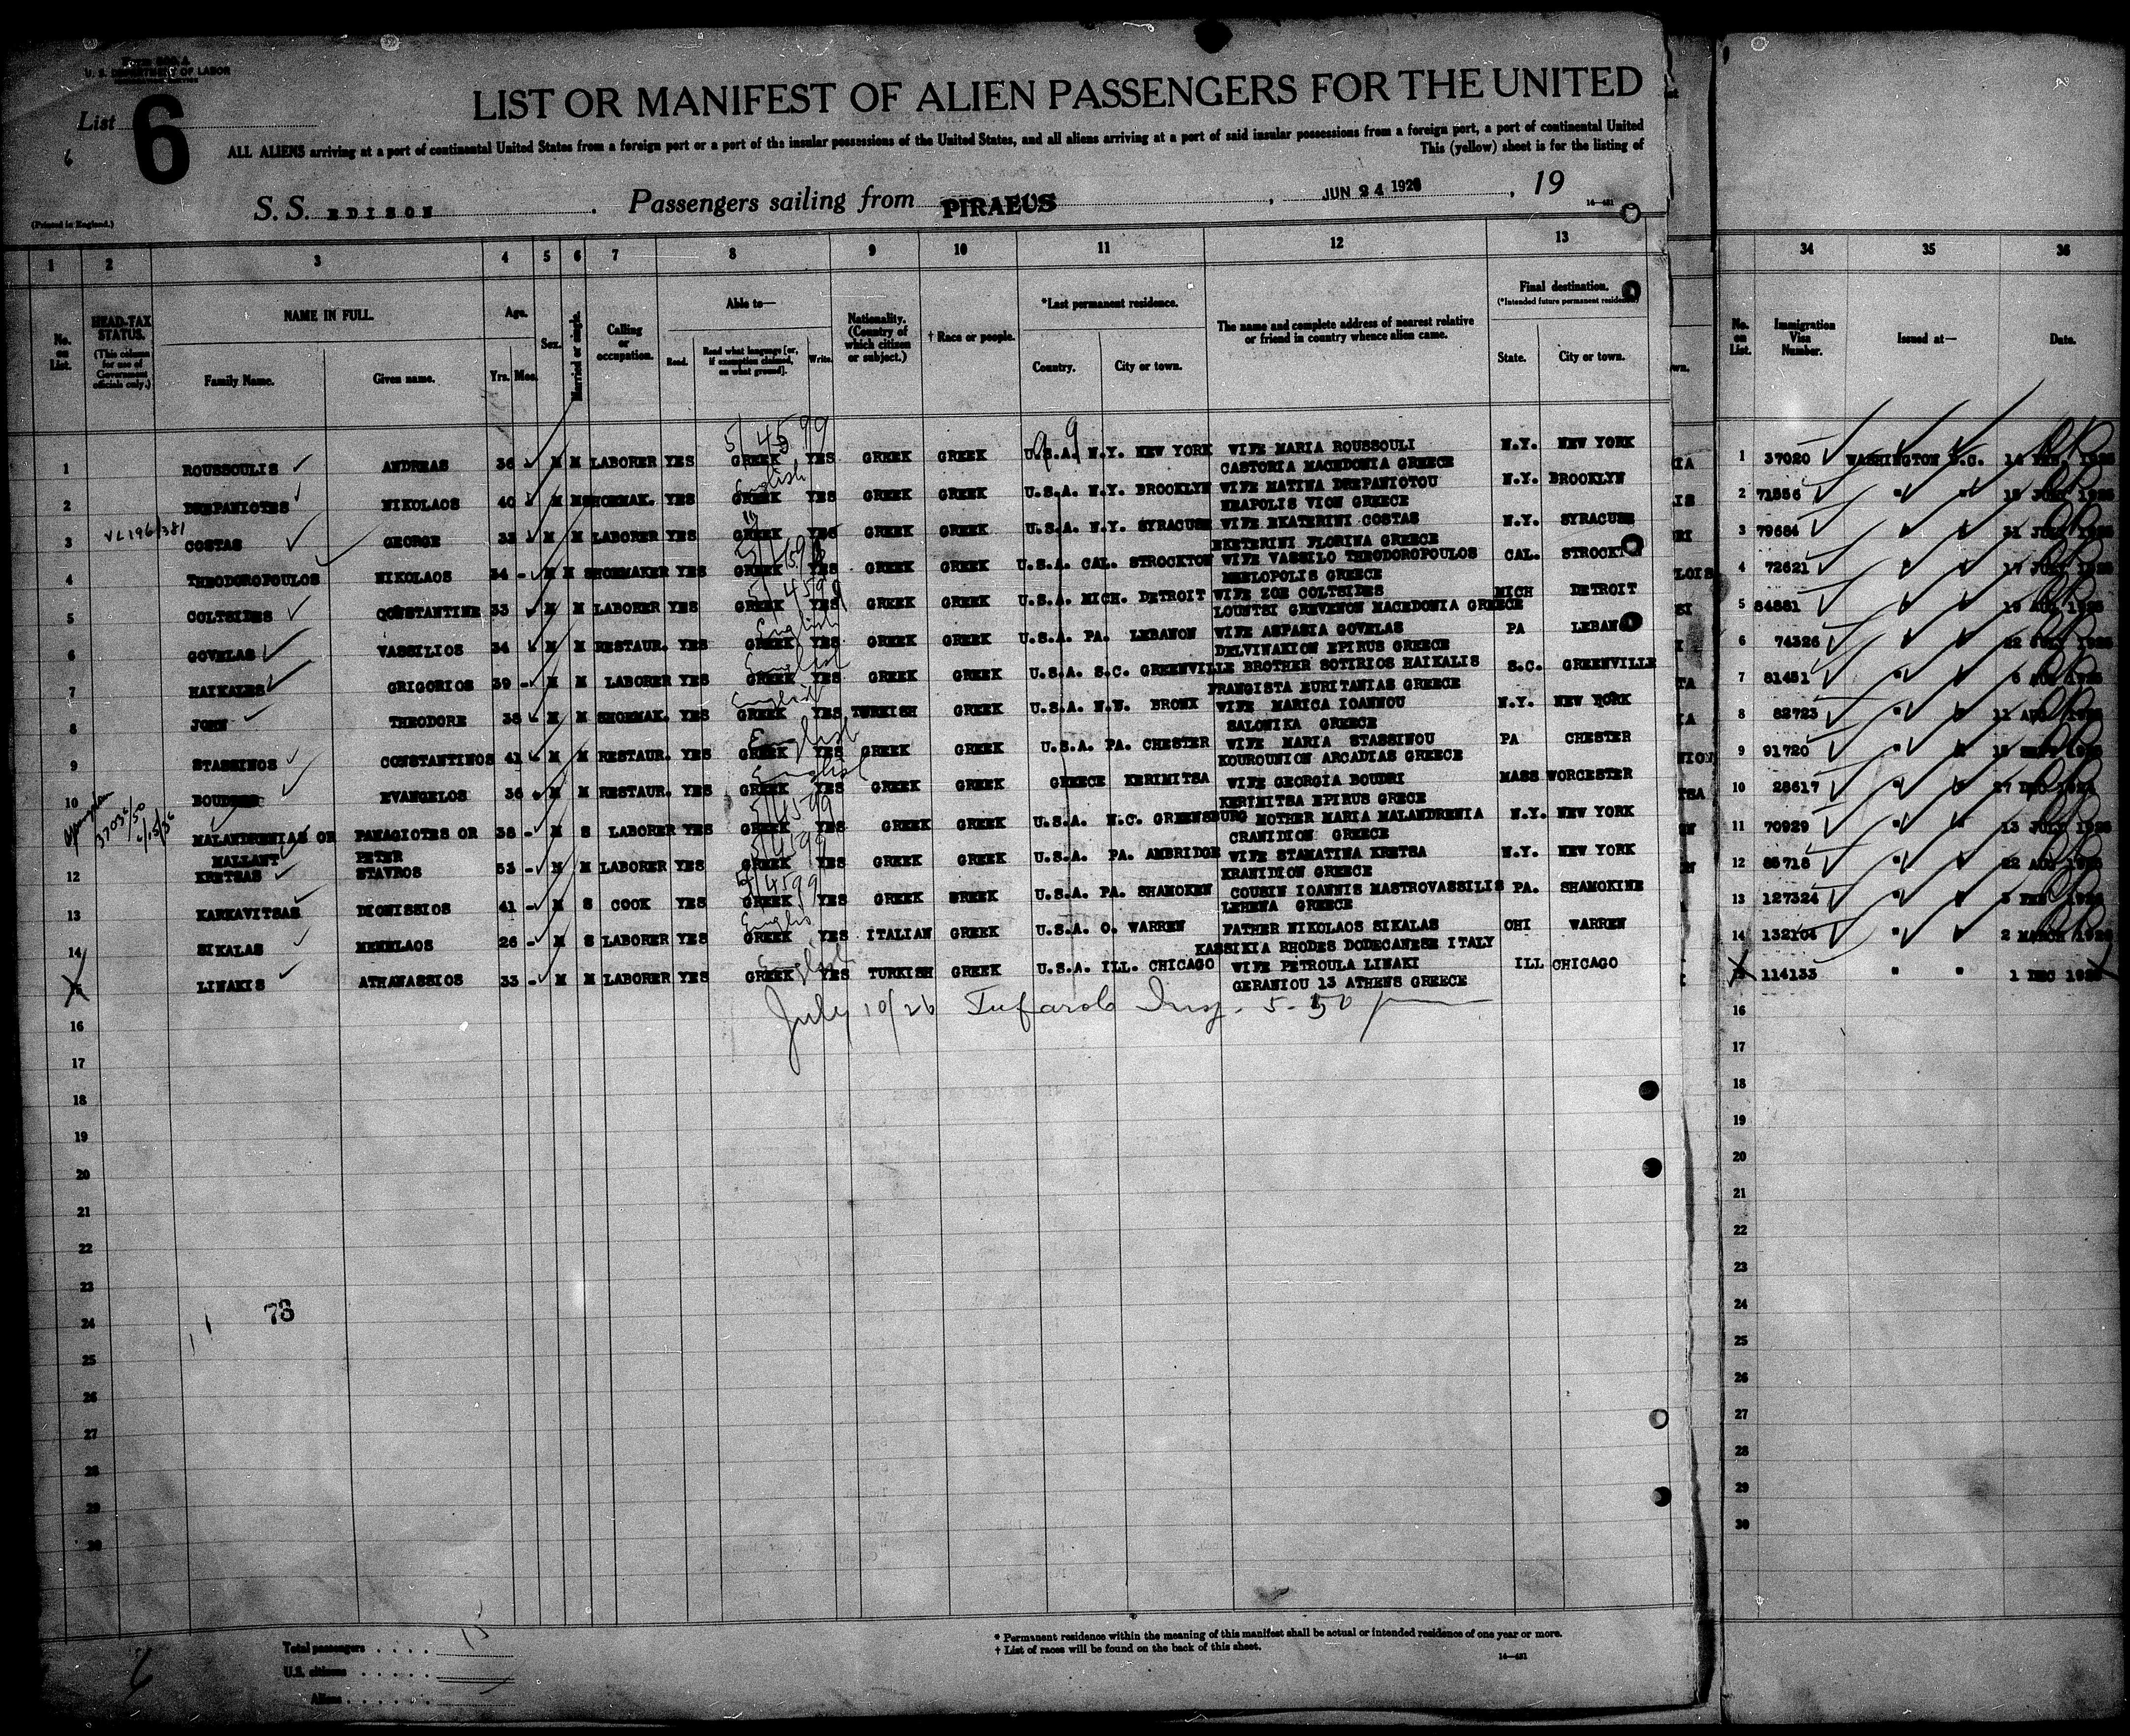 U. S. DEPARTMENT OF LABOR
List 6
LIST OR MANIFEST OF ALIEN PASSENGERS FOR THE UNITED
ALL ALIENS arriving at a port of continental United States from a foreign port or a port of the insular possessions of the United States, and all aliens arriving at a port of said insular possessions from a foreign port, a port of continental United
This (yellow) sheet is for the listing of
S. S. EDISON . Passengers sailing from PIRAEUS , JUN 24 1926 , 19
(Printed in England.)
1 2 3 4 5 6 7 8 9 10 11 12 13 34 35 36
No. on List.
HEAD-TAX STATUS. (This column for use of Government officials only.)
NAME IN FULL.
Family Name. Given name.
Age.
Yrs. Mos.
Sex.
Married or single.
Calling or occupation.
Able to—
Read. Read what language [or, if exemption claimed, on what ground]. Write.
Nationality. (Country of which citizen or subject.)
† Race or people.
*Last permanent residence.
Country. City or town.
The name and complete address of nearest relative or friend in country whence alien came.
Final destination.
(*Intended future permanent residence)
State. City or town.
No. on List. Immigration Visa Number. Issued at— Date.
1 ROUSSOULIS ANDREAS 36 M M LABORER YES GREEK YES GREEK GREEK U.S.A. N.Y. NEW YORK WIFE MARIA ROUSSOULI N.Y. NEW YORK 1 37020 WASHINGTON D.C.
CASTORIA MACEDONIA GREECE
2 DREPANIOTES NIKOLAOS 40 M M SHOEMAK. YES GREEK English YES GREEK GREEK U.S.A. N.Y. BROOKLYN WIFE MATINA DREPANIOTOU N.Y. BROOKLYN 2 71556 "
NEAPOLIS VION GREECE
3 COSTAS GEORGE 33 M M LABORER YES GREEK YES GREEK GREEK U.S.A. N.Y. SYRACUSE WIFE EKATERINI COSTAS N.Y. SYRACUSE 3 79684
EKETERINI FLORINA GREECE
4 THEODOROPOULOS NIKOLAOS 34 M M SHOEMAKER YES GREEK YES GREEK GREEK U.S.A. CAL. STROCKTON WIFE VASSILO THEODOROPOULOS CAL. 4 72621
GREECE
5 COLTSIDES CONSTANTINE 33 M M LABORER YES GREEK YES GREEK GREEK U.S.A. MICH. DETROIT WIFE ZOE COLTSIDES MICH DETROIT 5 84881
LOUNTSI GREVENON MACEDONIA GREECE
6 GOVELAS VASSILIOS 34 M M RESTAUR. YES GREEK English YES GREEK GREEK U.S.A. PA. LEBANON WIFE ASPASIA GOVELAS PA 6 74326
DELVINAKION EPIRUS GREECE
7 HAIKALES GRIGORIOS 39 M M LABORER YES GREEK English YES GREEK GREEK U.S.A. S.C. GREENVILLE BROTHER SOTIRIOS HAIKALIS S.C. GREENVILLE 7 81451
FRANGISTA EURITANIAS GREECE
8 JOHN THEODORE 38 M M SHOEMAK. YES GREEK English YES TURKISH GREEK U.S.A. N.Y. BRONX WIFE MARICA IOANNOU N.Y. NEW YORK 8 82723
SALONIKA GREECE
9 STASSINOS CONSTANTINOS 41 M M RESTAUR. YES GREEK English YES GREEK GREEK U.S.A. PA. CHESTER WIFE MARIA STASSINOU PA CHESTER 9 91720
KOUROUNION ARCADIAS GREECE
10 EVANGELOS 36 M M RESTAUR. YES GREEK English YES GREEK GREEK GREECE KERIMITSA WIFE GEORGIA BOUDRI MASS WORCESTER 10 28617
KERIMITSA EPIRUS GRECE
11 MALANDRENIAS OR PANAGIOTES OR 38 M S LABORER YES GREEK YES GREEK GREEK U.S.A. N.C. GREENSBURG MOTHER MARIA MALANDRENIA N.Y. NEW YORK 11 70929 13 JULY
MALLANT PETER CRANIDION GREECE
12 KRETSAS STAVROS 53 M M LABORER YES GREEK YES GREEK GREEK U.S.A. PA. AMBRIDGE WIFE STAMATINA KRETSA N.Y. NEW YORK 12
KRANIDION GREECE
13 KARKAVITSAS DIONISSIOS 41 M S COOK YES GREEK YES GREEK GREEK U.S.A. PA. SHAMOKEN COUSIN IOANNIS MASTROVASSILIS PA. SHAMOKINE 13 127324
LEHENA GREECE
14 SIKALAS MENELAOS 26 M S LABORER YES GREEK English YES ITALIAN GREEK U.S.A. O. WARREN FATHER NIKOLAOS SIKALAS OHI WARREN 14 132104 2 MARCH
KASSIKIA RHODES DODECANESE ITALY
15 LINAKIS ATHANASSIOS 33 M M LABORER YES GREEK English YES TURKISH GREEK U.S.A. ILL. CHICAGO WIFE PETROULA LINAKI ILL CHICAGO 114133 " " 1 DEC
GERANIOU 13 ATHENS GREECE
July 10/26
16 16
17 17
18 18
19 19
20 20
21 21
22 22
23 23
24 73 24
25 25
26 26
27 27
28 28
29 29
30 30
Total passengers
U.S. citizens
Aliens
* Permanent residence within the meaning of this manifest shall be actual or intended residence of one year or more.
† List of races will be found on the back of this sheet.